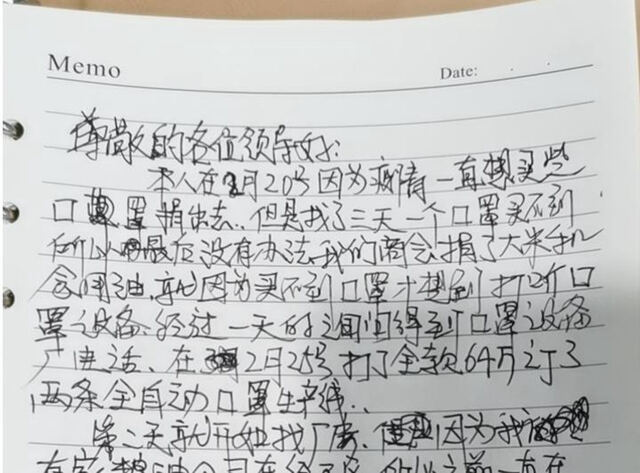 Memo Date:
尊敬的各位领导好：
本人在2月20号因为疫情一直想买些
口罩捐出去..但是找了三天一个口罩买不到
所以最后没有办法我们商会捐了大米和
食用油.就因为买不到口罩才想到打听口
罩设备.经过一天时间问得到口罩设备
厂电话、在2月25号打了全款64万订了
两条全自动口罩生产线..
第二天就开始找厂房、因为我